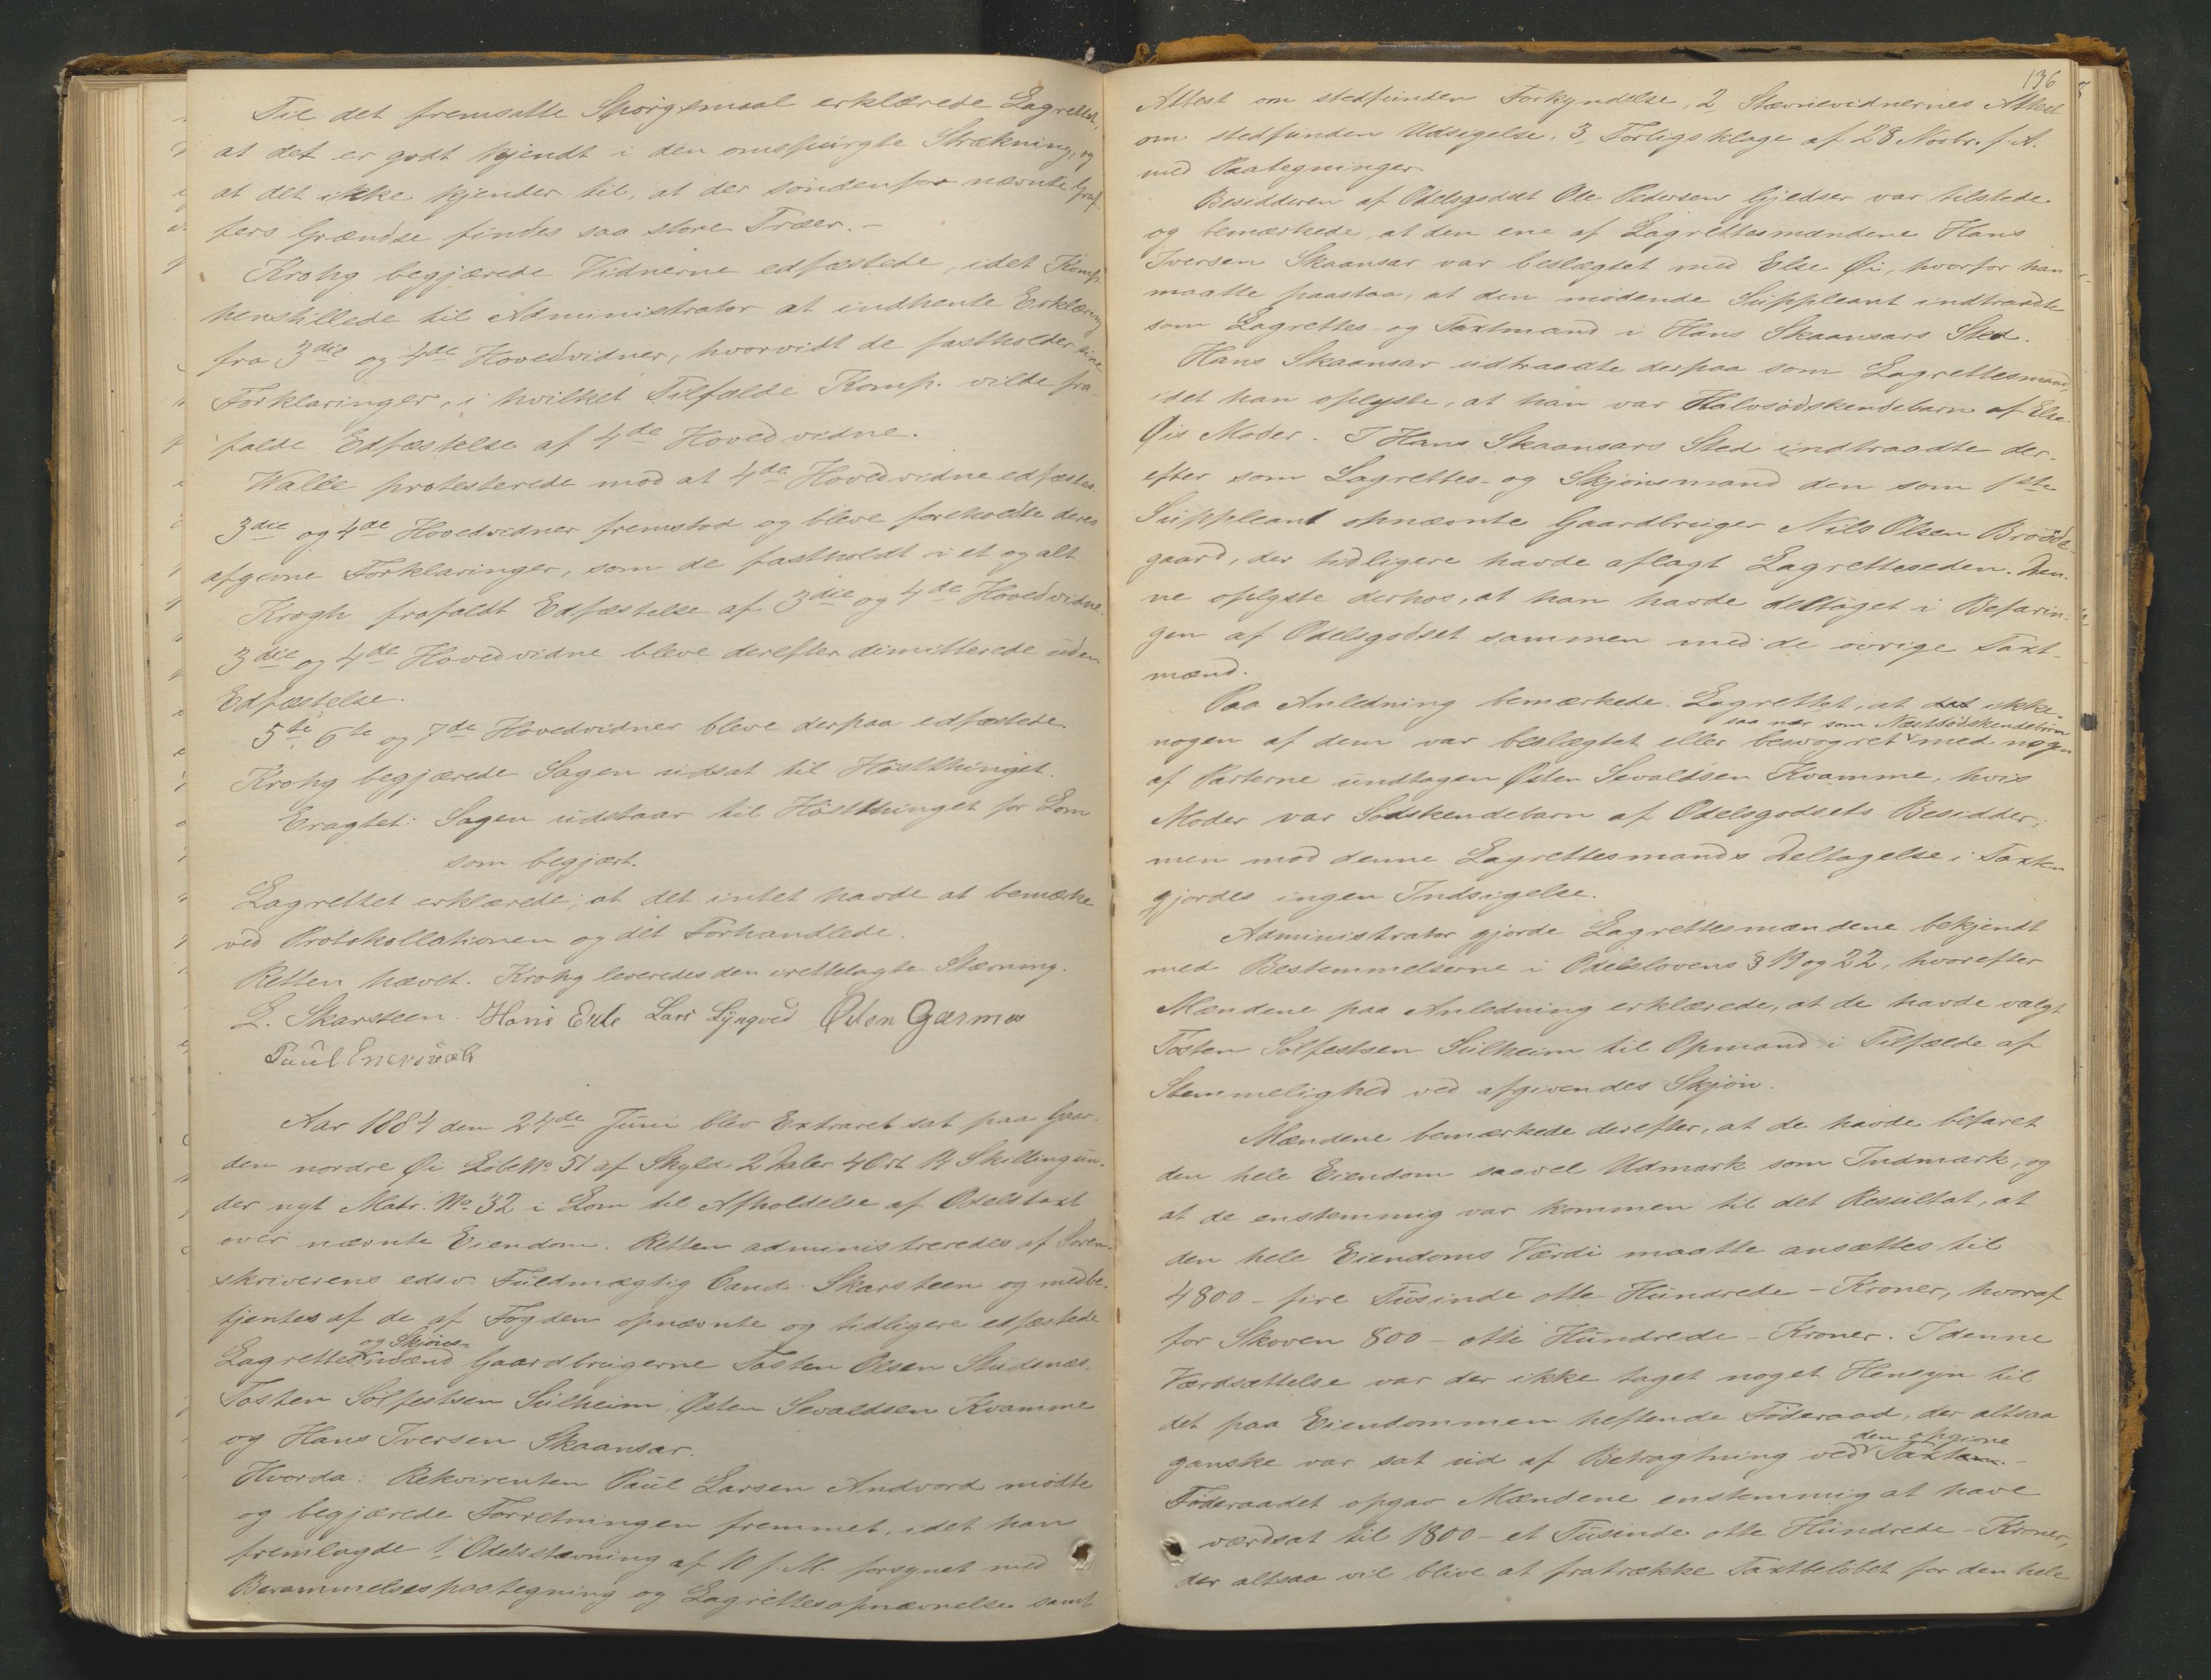 Til det fremsatte Spørgsmaal erklærede Lagrettet,
at det er godt kjendt i den omspurgte Strækning, og
at det ikke kjender til, at der søndenfor nævnte Graf-
fers Grændse findes saa store Træer.-
Krohg begjærede Vidnerne edfæstede, idet Komp.
henstillede til Administrator at indhente Erklæring
fra 3die og 4de Hovedvidner, hvorvidt de fastholder sine
Forklaringer, i hvilket Tilfælde Komp. vilde fra-
falde Edfæstelse af 4de Hovedvidne.
Walle protesterede mod at 4de Hovedvidne edfæstes.
3die og 4de Hovedvidner fremstod og bleve foreholdte deres
afgivne Forklaringer, som de fastholdt i et og alt.
Krogh frafaldt Edfæstelse af 3die og 4de Hovedvidne.
3die og 4de Hovedvidne bleve derefter dimitterede uden
Edfæstelse.
5te, 6te og 7de Hovedvidner bleve derpaa edfæstede.
Krohg begjærede Sagen udsat til Høstthinget.
Eragtet: Sagen udstaar til Høstthinget for Lom
som begjært.
Lagrettet erklærede, at det intet havde at bemærke
ved Protokollationen og det Forhandlede.
Retten hævet. Krohg leveredes den irettelagte Stævning.
L. Skarsteen. Hans Ekle Lars Lyngved Østen Garmo
Paul
Aar 1884 den 24de Juni blev Extraret sat paa Gaar-
den nordre Øi LøbeNo 51 af Skyld 2 Daler 4 Ort 14 Skilling un-
der nyt Matr. No 32 i Lom til Afholdelse af Odelstaxt
over nævnte Eiendom. Retten administreredes af Soren-
skriverens edsv. Fuldmægtig Cand. Skarsteen og medbe-
tjentes af de af Fogden opnævnte og tidligere edfæstede
og Skjøns-
Lagrettesmænd Gaardbrugerne Tosten Olsen Studenæs,
Tosten Solfestsen Sulheim, Østen Sevaldsen Kvamme
og Hans Iversen Skaansar.
Hvorda: Rekvirenten Paul Larsen Andvord mødte
og begjærede Forretningen fremmet, idet han
fremlagde 1 Odelsstævning af 10 f. M. forsynet med
Berammelsespaategning og Lagrettesopnævnelse samt
136
Attest om stedfunden Forkyndelse, 2 Stævnevidnernes Attest
om stedfunden Udsigelse, 3 Forligsklage af 28 Novbr. f. A.
med Paategninger.
Besidderen af Odelsgodset Ole Pedersen Gjedser var tilstede
og bemærkede, at den ene af Lagrettesmændene Hans
Iversen Skaansar var beslægtet med Else Øi, hvorfor han
maatte paastaa, at den mødende Suppleant indtraadte
som Lagrettes- og Taxtmand i Hans Skaansars Sted.
Hans Skaansar udtraadte derpaa som Lagrettesmand,
idet han oplyste, at han var Halvsødskendebarn af Else
Øis Moder. I Hans Skaansars Sted indtraadte der-
efter som Lagrettes- og Skjønsmand den som 1ste
Suppleant opnævnte Gaardbruger Nils Olsen
gaard, der tidligere havde aflagt Lagretteseden. Den-
ne oplyste derhos, at han havde deltaget i Befarin-
gen af Odelsgodset sammen med de øvrige Taxt-
mænd.
Paa Anledning bemærkede Lagrettet, at det ikke
saa nær som Næstsødskendebørn
nogen af dem var beslægtet eller besvogret med nogen
af Parterne undtagen Østen Sevaldsen Kvamme, hvis
Moder var Sødskendebarn af Odelsgodsets Besidder;
men mod denne Lagrettesmands Deltagelse i Taxten
gjordes ingen Indsigelse.
Administrator gjorde Lagrettesmændene bekjendt
med Bestemmelserne i Odelslovens § 19 og 22, hvorefter
Mændene paa Anledning erklærede, at de havde valgt
Tosten Solfestsen Sulheim til Opmand i Tilfælde af
Stemmelighed ved afgivendes Skjøn.
Mændene bemærkede derefter, at de havde befaret
den hele Eiendom saavel Udmark som Indmark, og
at de enstemmig var kommen til det Resultat, at
den hele Eiendoms Værdi maatte ansættes til
4800 - fire Tusinde otte Hundrede - Kroner, hvoraf
for Skoven 800 - otte Hundrede - Kroner. I denne
Værdsættelse var der ikke taget noget Hensyn til
det paa Eiendommen heftende Føderaad, der altsaa
den opgivne
ganske var sat ud af Betragtning ved Taxten.-
Føderaadet opgav Mændene enstemmig at have
værdsat til 1800 - et Tusinde otte Hundrede - Kroner,
der altsaa vil blive at fratrække Taxtbeløbet for den hele